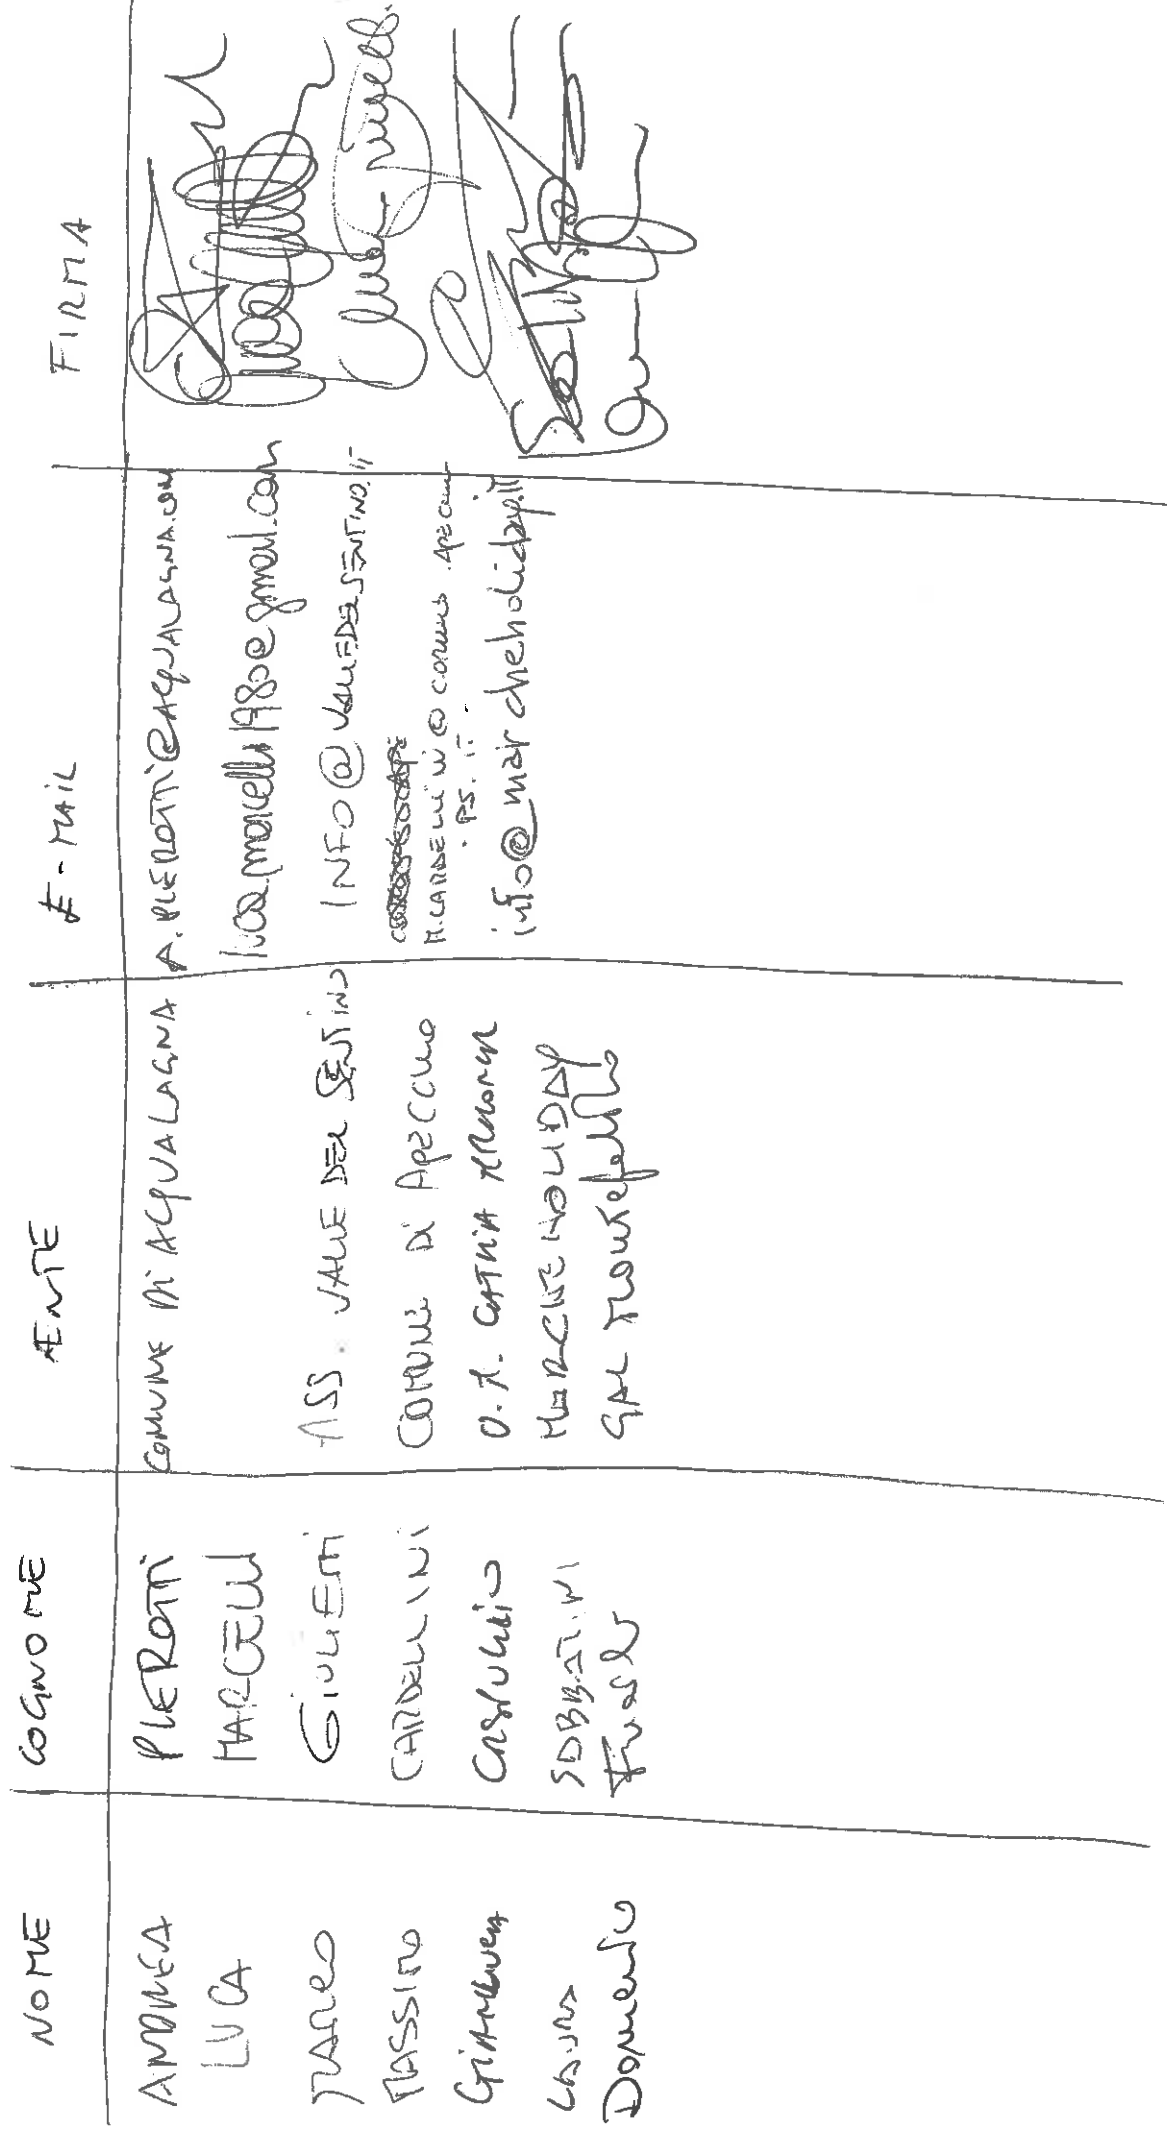 NOME COGNOME ENTE E-MAIL FIRMA
ANDREA PIEROTTI COMUNE DI ACQUALAGNA A.PIEROTTI@ACQUALAGNA.COM
LUCA MARCELLI luca.marcelli1980@gmail.com
MARCO GIULIETTI ASS. VALLE DEL SENTINO INFO@VALLEDELSENTINO.IT
MASSIMO CARDELLINI COMUNE DI APECCHIO M.CARDELLINI@COMUNE.APECCHIO
.PS.IT.
GIANLUCA CATRIA info@marcheholiday.it
LAURA SABBATINI MARCHE HOLIDAY
Domenico GAL Montefeltro